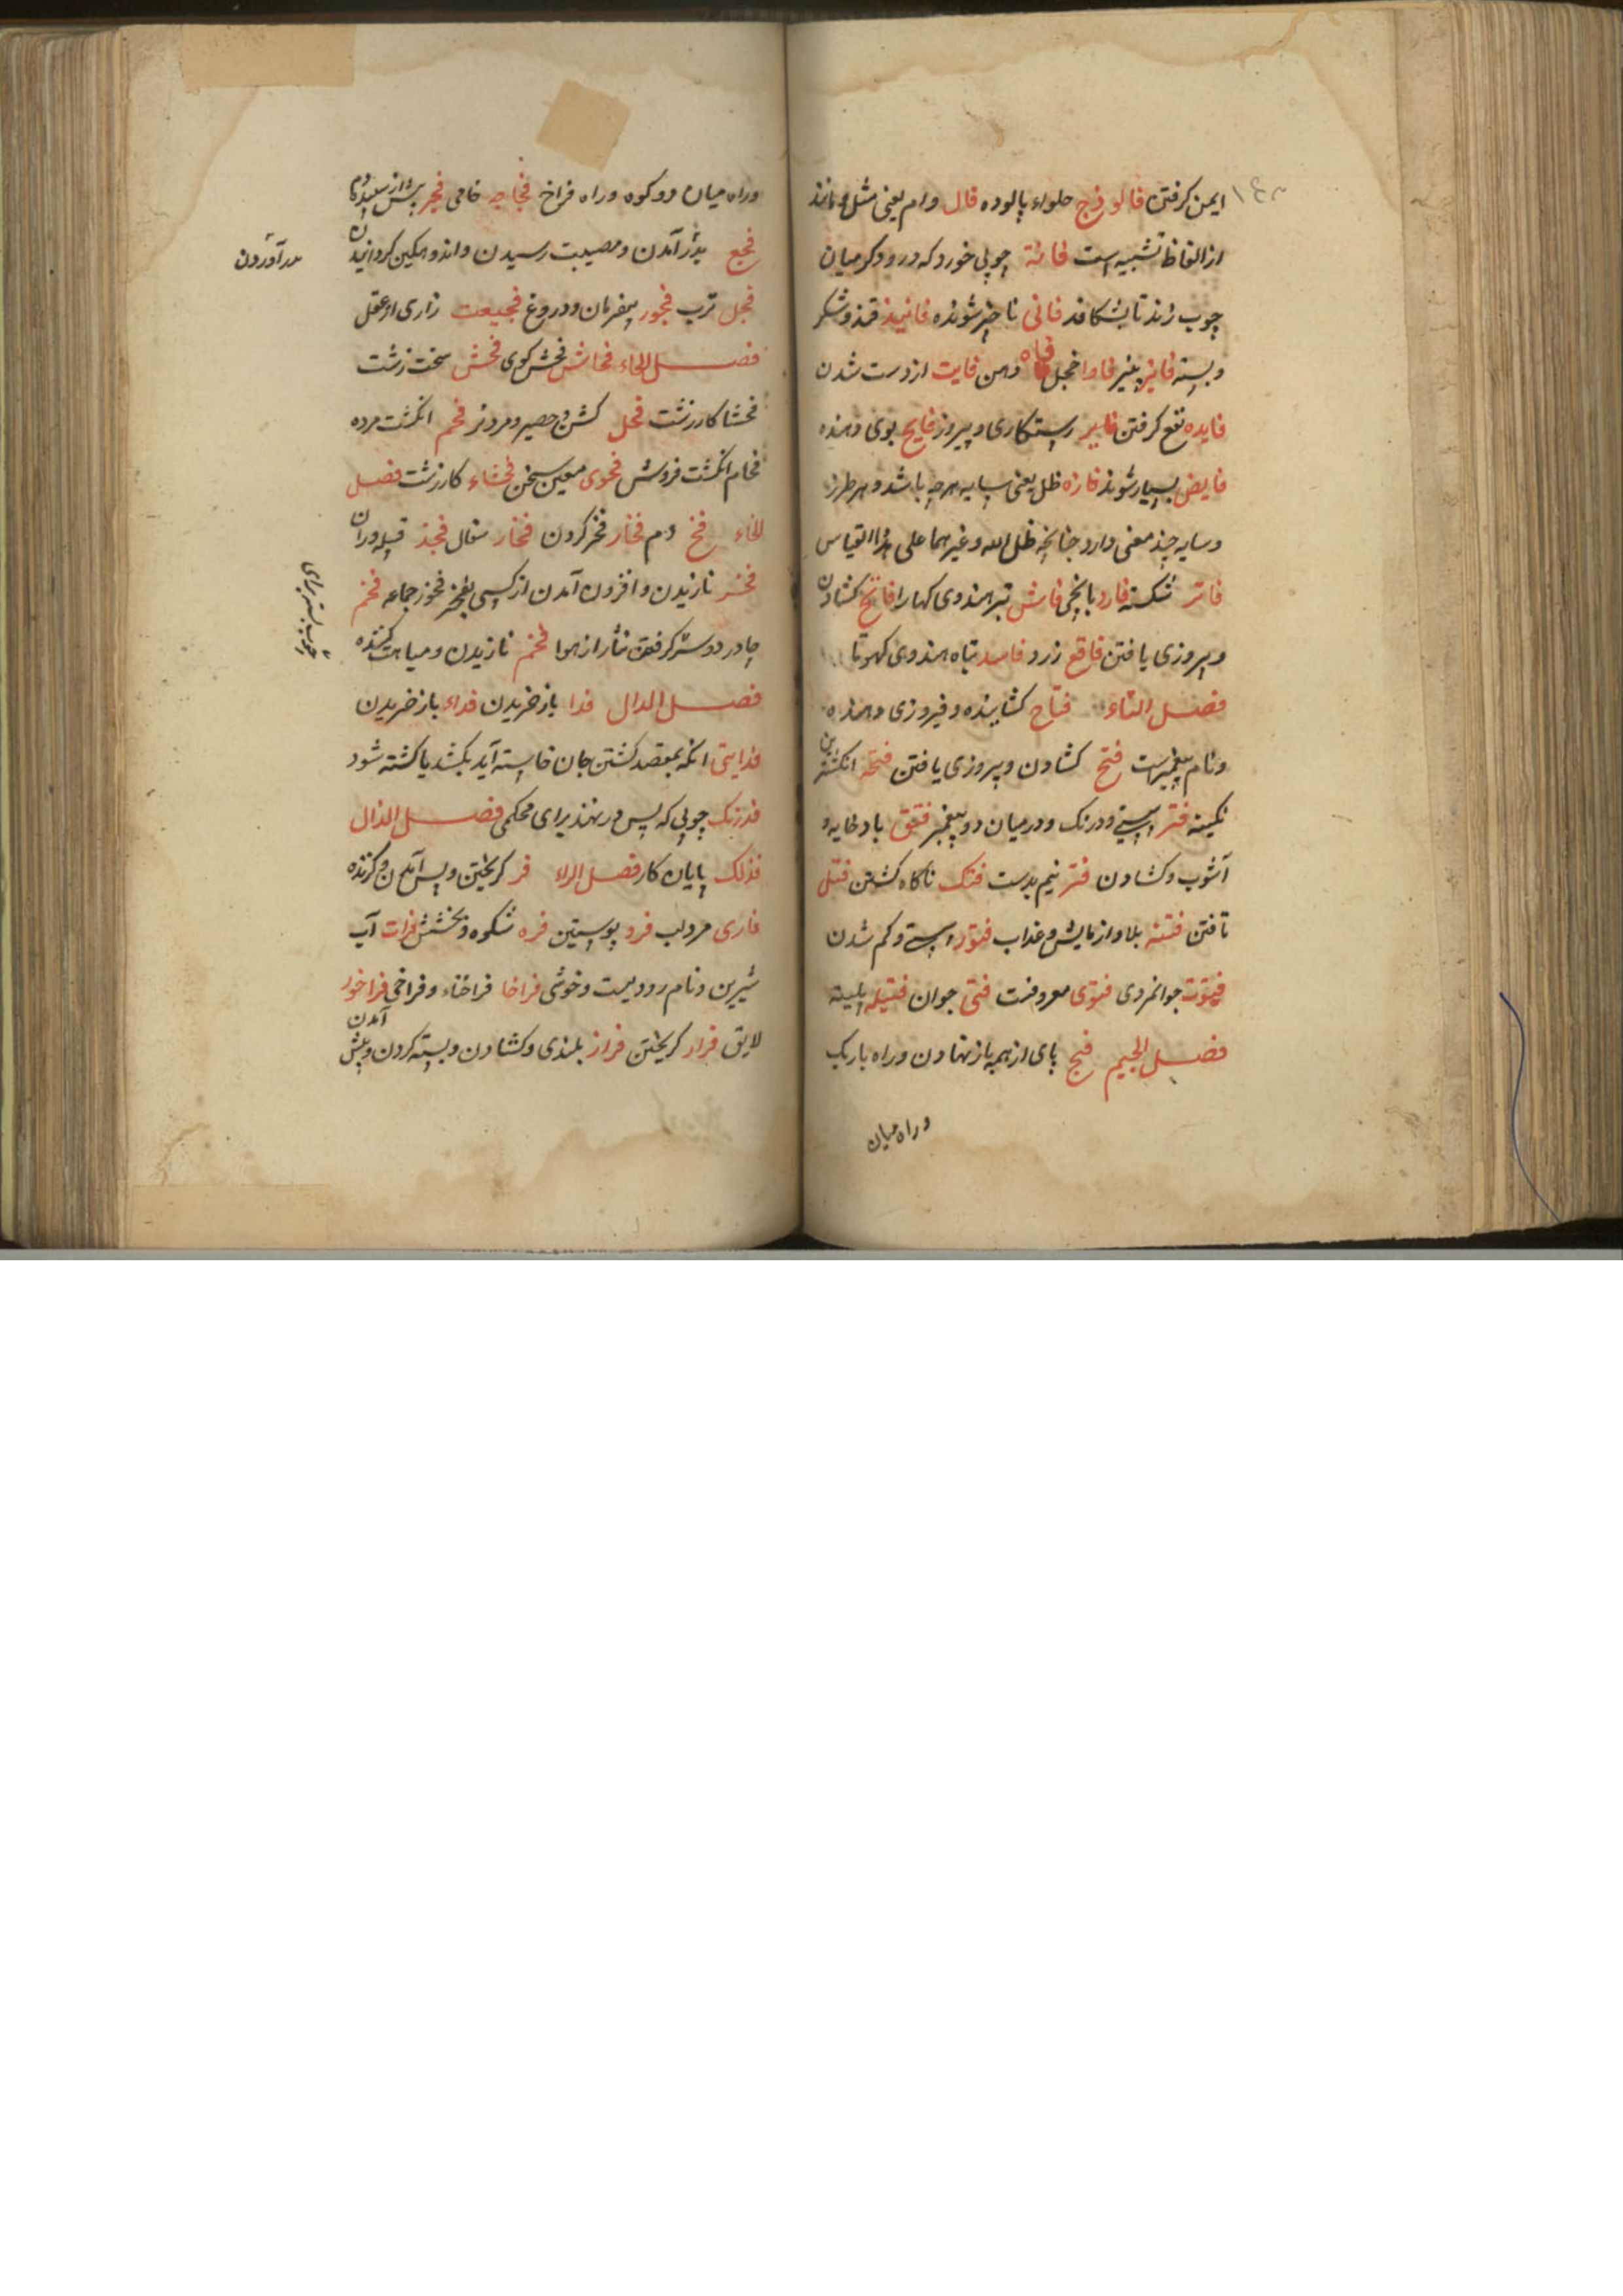 ایمن کرفتن فالوذج حلواء پالوده فال وام یعنی مثل و مانند
از الفاظ تشبیه است فانة چوبی خورد که درودکر میان
چوب زند تا بشکافد فانی ناچیز شونده فانیذ قند و شکر
و بسته پنیر فاوا خجل فاه دهن فایت از دست شدن
فایده نفع کرفتن رستکاری و پیروز فایح بوی دهنده
فایض بسیار شونده فازه ظل یعنی سایه هرچه باشد و هر طرز
و سایه چند معنی دارد چنانچه ظل الله و غیرهما علی هذا القیاس
فاتر شکسته فارد فاش تبر هندوی کهارا فاتح کشادن
و پیروزی یافتن فاقع زرد فاسد تباه هندوی کهوتا
فصل التاء فتاح کشاینده و فیروزی دهنده
و نام پیغمبریست فتح کشادن و پیروزی یافتن فتخه انکشترین
نکینه فتر سستی و درنک و در میان دو پیغمبر فتق باد خایه و
آشوب و کشادن فتر نیم بدست فتک ناکاه کشتن فتل
تافتن فتنه بلا و ازمایش و عذاب فتور سستی و کم شدن
فتوت جوانمردی فتوی معروفست فتی جوان فتیله پلیته
فصل الجیم فج پای از هم باز نهادن و راه باریک
و راه میان
و راه میان دو کوه و راه فراخ فجاجه خامی فجر پیش از سپیده دم
فجع بدرد آمدن و مصیبت رسیدن و اندوهکین کردانیدن
درد آوردن
فجل ترب فجور بیفرمان و دروغ فجیعت زاری از عقل
فصل الحاء فحاش فحش کوی فحش سخت زشت
فحشا کار زشت فحل کشن و حصیر و مرد نر فحم انکشت مرده
فحام انکشت فروش فحوی معین سخن فحشاء کار زشت فصل
الخاء فخ دم فخار فخر کردن فخار سفال فخذ قبیله و ران
فخر نازیدن و افزون آمدن از کسی بفخر فخوز جماعه فخم
چادر دو سر کرفتن نثار از هوا فخم نازیدن و مباهت کننده
فصل الدال فدا باز خریدن فداء باز خریدن
فدایتی انکه بقصد کشتن جان خاسته آید بکشد یا کشته شود
فدرنک چوبی که پس در نهند برای محکمی فصل الذال
فذلک پایان کار فصل الراء فر کریختن و پس آمدن و کزنده
فاری مرد لب فرو پوستین فره شکوه و بخشش فرات آب
شیرین و نام رودیست و خوشی فراخا فراخناء و فراخی فراخور
لایق فرار کریختن فراز بلندی و کشادن و بسته کردن و پیش آمدن